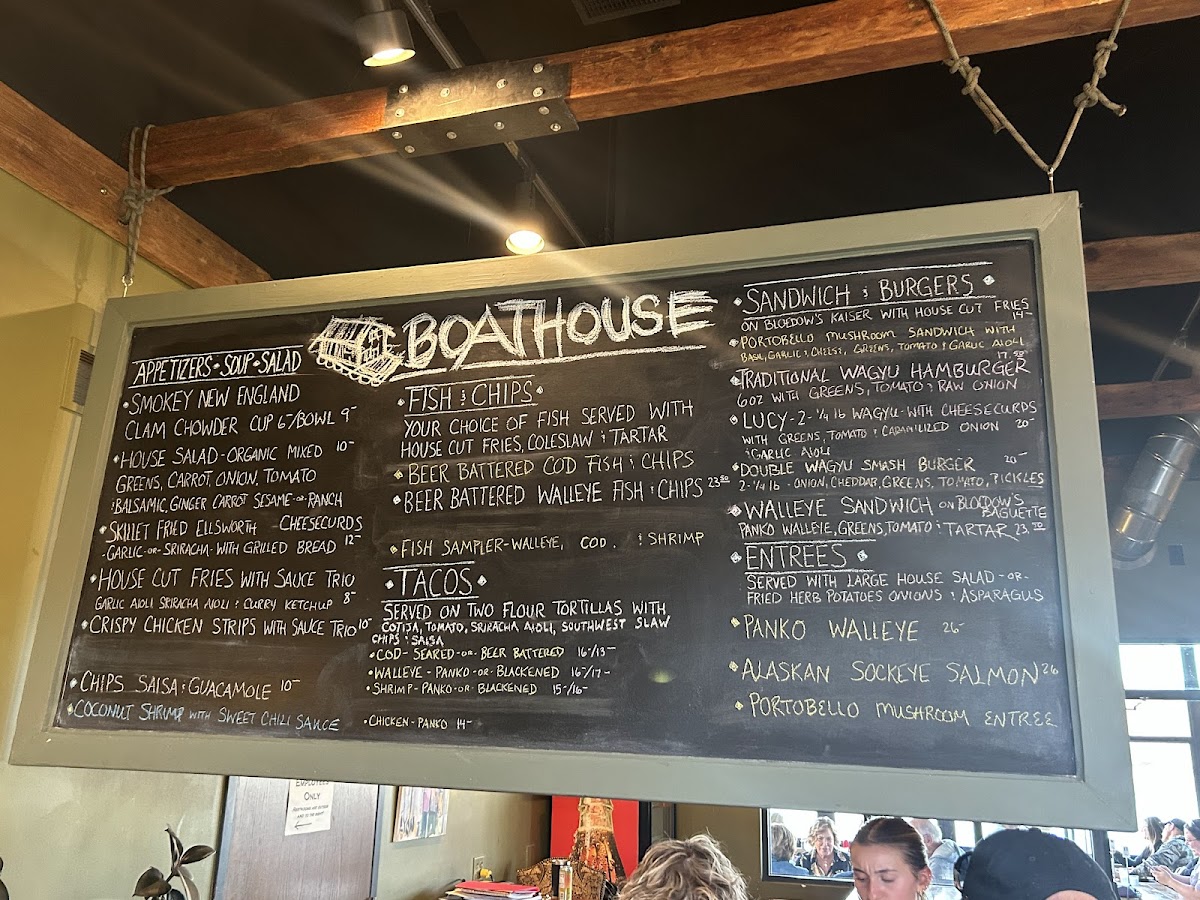 BOATHOUSE
APPETIZERS • SOUP • SALAD
• SMOKEY NEW ENGLAND
CLAM CHOWDER CUP 6-/BOWL 9-
• HOUSE SALAD - ORGANIC MIXED 10-
GREENS, CARROT, ONION, TOMATO
BALSAMIC, GINGER CARROT SESAME -OR- RANCH
• SKILLET FRIED ELLSWORTH CHEESECURDS
- GARLIC -OR- SRIRACHA - WITH GRILLED BREAD 12-
• HOUSE CUT FRIES WITH SAUCE TRIO
GARLIC AIOLI SRIRACHA AIOLI & CURRY KETCHUP 8-
• CRISPY CHICKEN STRIPS WITH SAUCE TRIO 10-
• CHIPS SALSA & GUACAMOLE 10-
• COCONUT SHRIMP WITH SWEET CHILI SAUCE
• FISH & CHIPS •
YOUR CHOICE OF FISH SERVED WITH
HOUSE CUT FRIES, COLESLAW & TARTAR
• BEER BATTERED COD FISH & CHIPS
• BEER BATTERED WALLEYE FISH & CHIPS 23.50
• FISH SAMPLER - WALLEYE, COD, & SHRIMP
• TACOS •
SERVED ON TWO FLOUR TORTILLAS WITH
COTIJA, TOMATO, SRIRACHA AIOLI, SOUTHWEST SLAW
CHIPS & SALSA
• COD - SEARED -OR- BEER BATTERED 16-/13-
• WALLEYE - PANKO -OR- BLACKENED 16-/17-
• SHRIMP - PANKO -OR- BLACKENED 15-/16-
• CHICKEN - PANKO 14-
• SANDWICH & BURGERS •
ON BLOEDOW'S KAISER WITH HOUSE CUT FRIES
• PORTOBELLO MUSHROOM SANDWICH WITH 14-
BASIL, GARLIC & CHEESE, GREENS, TOMATO & GARLIC AIOLI
• TRADITIONAL WAGYU HAMBURGER 17.50
6OZ WITH GREENS, TOMATO & RAW ONION
• LUCY - 2 - 1/4 LB WAGYU - WITH CHEESECURDS
WITH GREENS, TOMATO & CARAMILIZED ONION 20-
& GARLIC AIOLI
• DOUBLE WAGYU SMASH BURGER 20-
2 - 1/4 LB - ONION, CHEDDAR, GREENS, TOMATO, PICKLES
• WALLEYE SANDWICH ON BLOEDOW'S BAGUETTE
PANKO WALLEYE, GREENS, TOMATO & TARTAR 23.
• ENTREES •
SERVED WITH LARGE HOUSE SALAD -OR-
FRIED HERB POTATOES ONIONS & ASPARAGUS
• PANKO WALLEYE 26-
• ALASKAN SOCKEYE SALMON 26
• PORTOBELLO MUSHROOM ENTREE
EMPLOYEES
ONLY